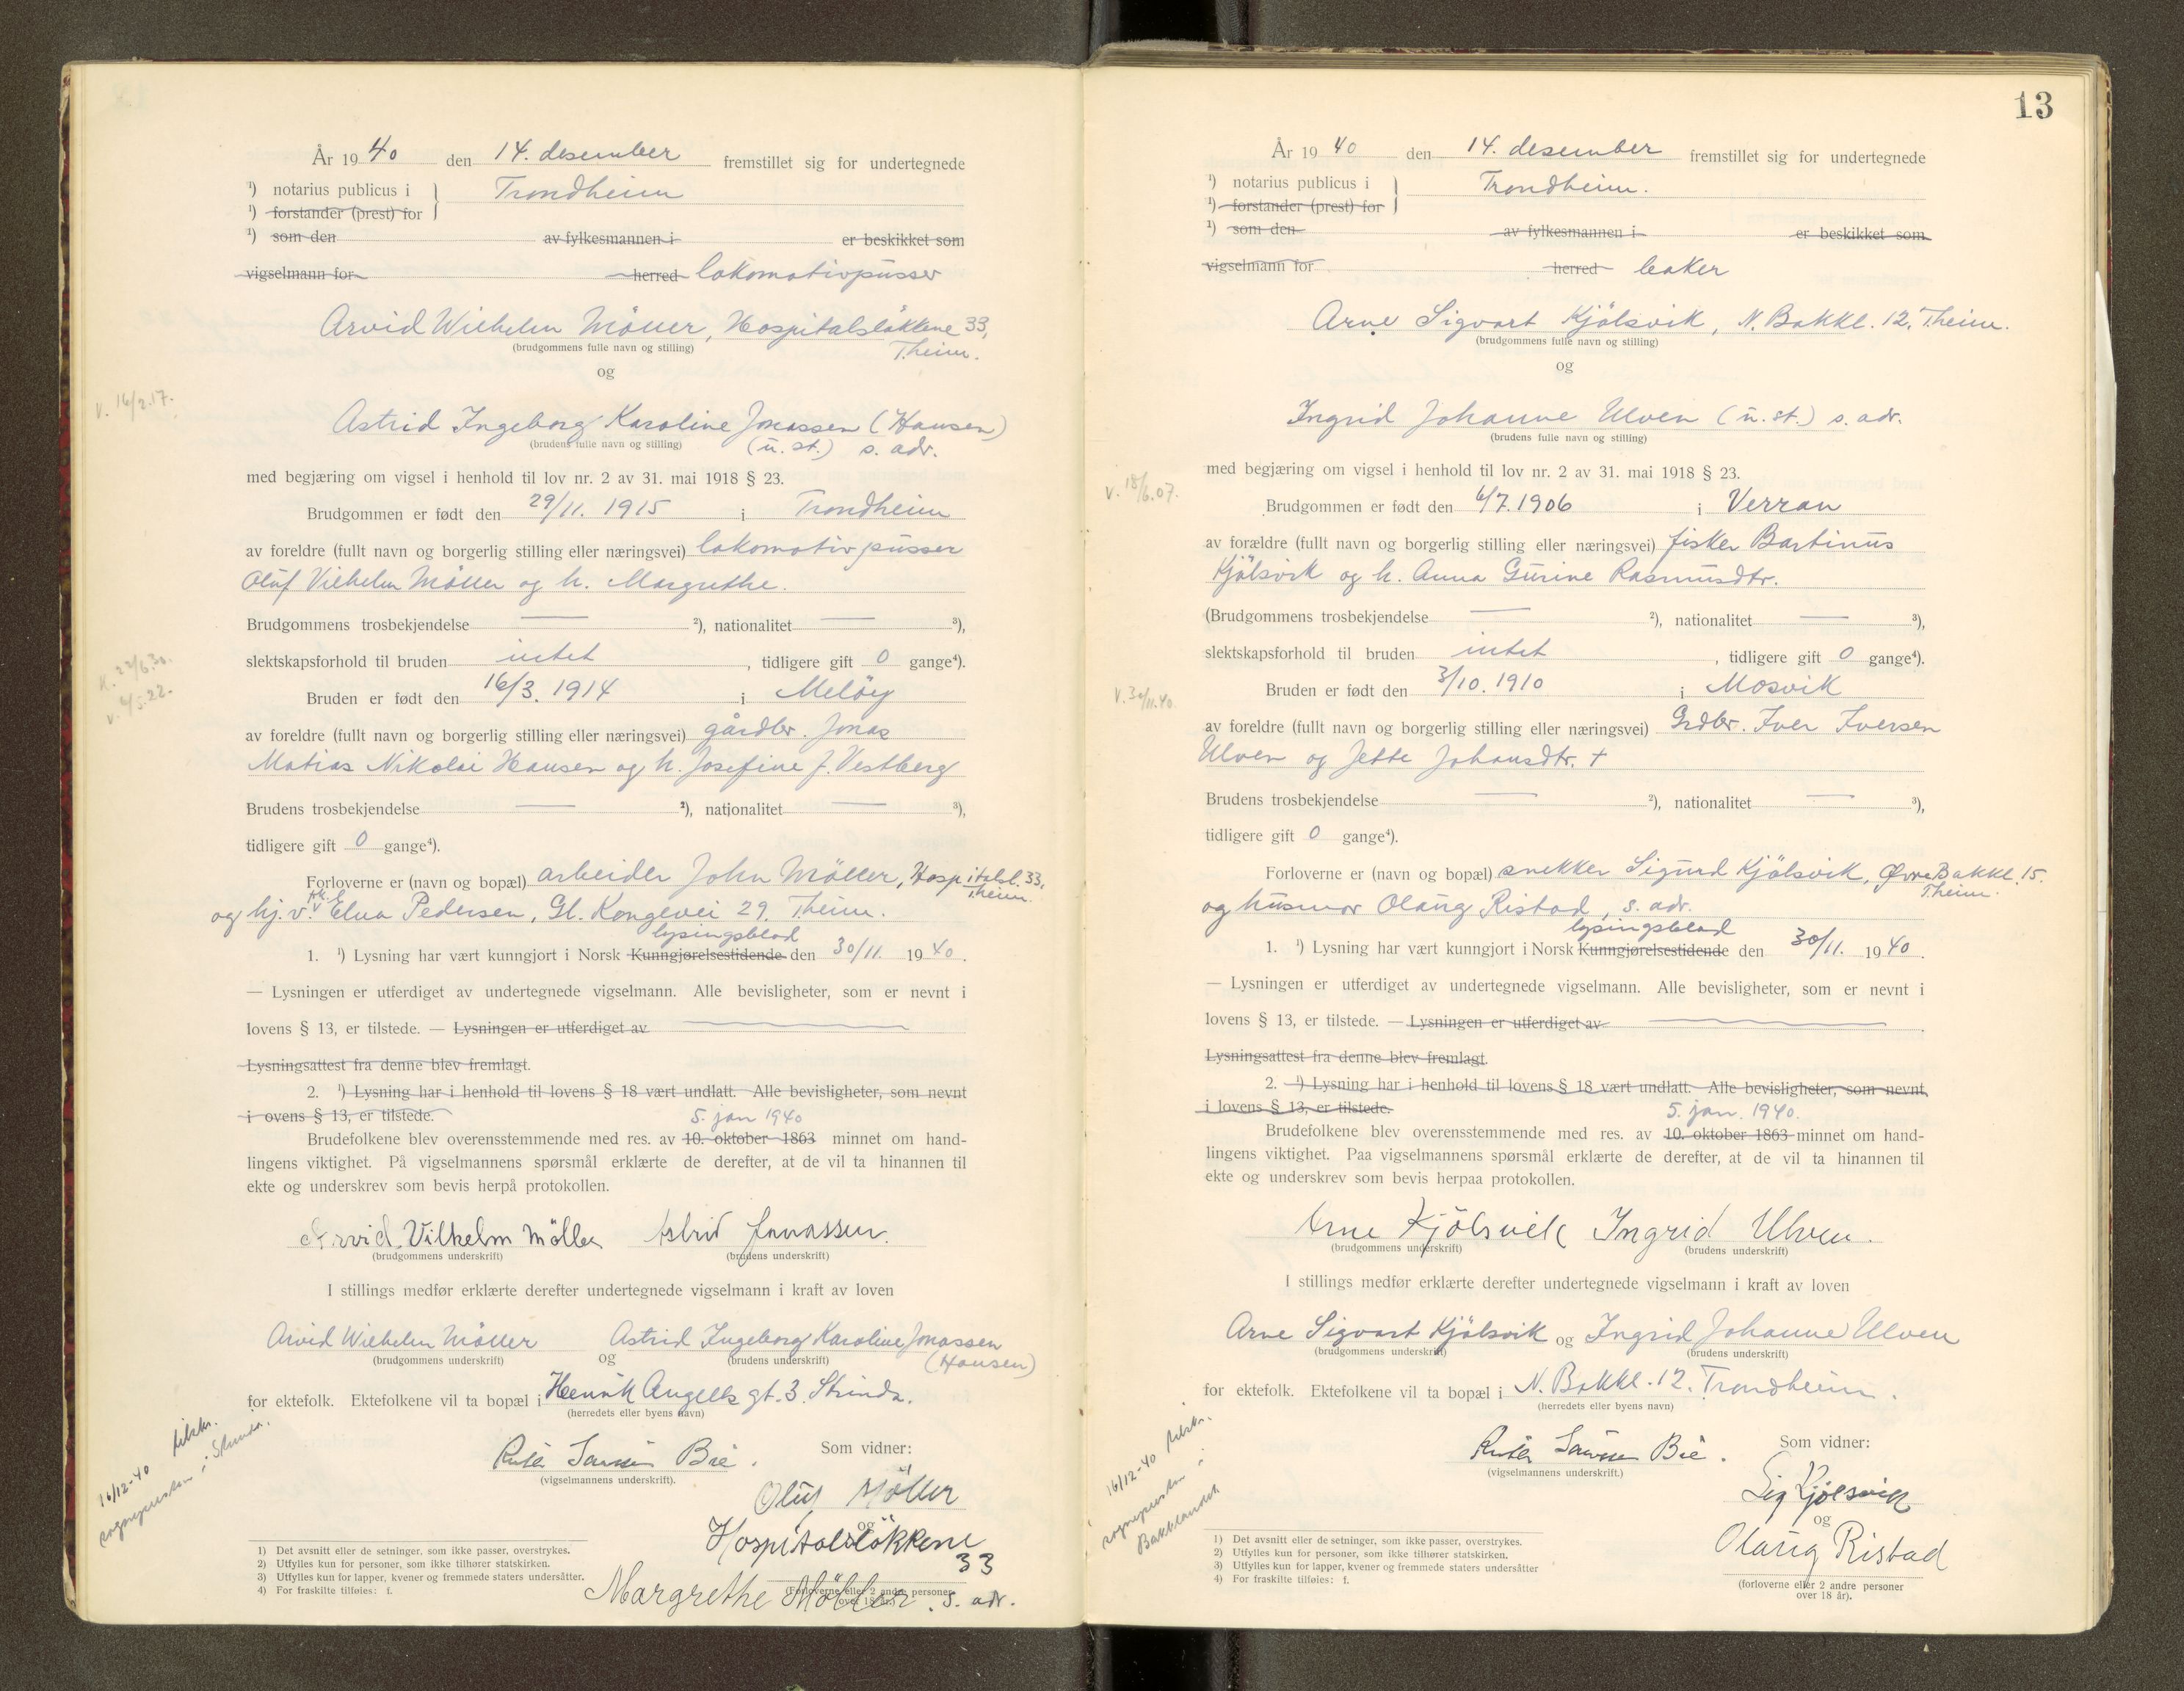 År 1940 den 14. desember fremstillet sig for undertegnede
¹) notarius publicus i } Trondheim
¹) forstander (prest) for
¹) som den av fylkesmannen i er beskikket som
vigselmann for herred lokomotivpusser
Arvid Wilhelm Möller, Hospitalsløkkene 33,
(brudgommens fulle navn og stilling) T.heim.
og
v. 16/2.17.
Astrid Ingeborg Karoline Jonassen (Hansen)
(brudens fulle navn og stilling) (u. st.) s. adr.
med begjæring om vigsel i henhold til lov nr. 2 av 31. mai 1918 § 23.
Brudgommen er født den 29/11. 1915 i Trondheim
av foreldre (fullt navn og borgerlig stilling eller næringsvei) lokomotivpusser
Oluf Vilhelm Möller og h. Margrethe.
Brudgommens trosbekjendelse — ²), nationalitet — ³),
slektskapsforhold til bruden intet, tidligere gift 0 gange⁴).
Bruden er født den 16/3. 1914 i Meløy
av foreldre (fullt navn og borgerlig stilling eller næringsvei) gårdbr. Jonas
Matias Nikolai Hansen og h. Josefine J. Vestberg
Brudens trosbekjendelse — ²), nationalitet — ³),
tidligere gift 0 gange⁴).
Forloverne er (navn og bopæl) arbeider John Möller, Hospitalsl. 33,
T.heim.
og hj. v. Elna Pedersen, Gl. Kongevei 29, T.heim.
lysingsblad
1. ¹) Lysning har vært kunngjort i Norsk Kunngjørelsestidende den 30/11. 1940.
— Lysningen er utferdiget av undertegnede vigselmann. Alle bevisligheter, som er nevnt i
lovens § 13, er tilstede. — Lysningen er utferdiget av
Lysningsattest fra denne blev fremlagt.
2. ¹) Lysning har i henhold til lovens § 18 vært undlatt. Alle bevisligheter, som nevnt
i ovens § 13, er tilstede. 5. jan 1940
Brudefolkene blev overensstemmende med res. av 10. oktober 1863 minnet om hand-
lingens viktighet. På vigselmannens spørsmål erklærte de derefter, at de vil ta hinannen til
ekte og underskrev som bevis herpå protokollen.
Arvid Vilhelm Möller Astrid Jonassen.
(brudgommens underskrift) (brudens underskrift)
I stillings medfør erklærte derefter undertegnede vigselmann i kraft av loven
Arvid Wilhelm Möller og Astrid Ingeborg Karoline Jonassen
(brudgommens underskrift) (brudens underskrift) (Hansen)
for ektefolk. Ektefolkene vil ta bopæl i Henrik Angells gt. 3. Strinda.
(herredets eller byens navn)
16/12-40 tilskr.
sognepresten i Strinda.
Bie. Som vidner:
(vigselmannens underskrift).
Oluf Möller
og
Hospitalsløkkene
33
Margrethe Möller. s. adr.
(Forloverne eller 2 andre personer
over 18 år).
1) Det avsnitt eller de setninger, som ikke passer, overstrykes.
2) Utfylles kun for personer, som ikke tilhører statskirken.
3) Utfylles kun for lapper, kvener og fremmede staters undersåtter.
4) For fraskilte tilføies: f.
13
År 1940 den 14. desember fremstillet sig for undertegnede
¹) notarius publicus i } Trondheim.
¹) forstander (prest) for
¹) som den av fylkesmannen i er beskikket som
vigselmann for herred baker
Arne Sigvart Kjölsvik, N. Bakkl. 12, T.heim.
(brudgommens fulle navn og stilling)
og
Ingrid Johanne Ulven (u. st.) s. adr.
(brudens fulle navn og stilling)
med begjæring om vigsel i henhold til lov nr. 2 av 31. mai 1918 § 23.
v. 18/6.07.
Brudgommen er født den 6/7.1906 i Verran
av forældre (fullt navn og borgerlig stilling eller næringsvei) fisker Bartinus
Kjölsvik og h. Anna Gurine Rasmusdtr.
(Brudgommens trosbekjendelse — ²), nationalitet — ³),
slektskapsforhold til bruden intet, tidligere gift 0 gange⁴).
Bruden er født den 3/10. 1910 i Mosvik
v. 30/11.40.
av foreldre (fullt navn og borgerlig stilling eller næringsvei) Grdbr. Iver Iversen
Ulven og Jette Johansdtr. +
Brudens trosbekjendelse — ²), nationalitet — ³),
tidligere gift 0 gange⁴).
Forloverne er (navn og bopæl) snekker Sigurd Kjölsvik, Øvre Bakkl. 15.
T.heim.
og husmor Olaug Ristad, s. adr.
lysingsblad
1. ¹) Lysning har vært kunngjort i Norsk Kunngjørelsestidende den 30/11. 1940.
— Lysningen er utferdiget av undertegnede vigselmann. Alle bevisligheter, som er nevnt i
lovens § 13, er tilstede. — Lysningen er utferdiget av
Lysningsattest fra denne blev fremlagt.
2. ¹) Lysning har i henhold til lovens § 18 vært undlatt. Alle bevisligheter, som nevnt,
i lovens § 13, er tilstede. 5. jan. 1940.
Brudefolkene blev overensstemmende med res. av 10. oktober 1863 minnet om hand-
lingens viktighet. Paa vigselmannens spørsmål erklærte de derefter, at de vil ta hinannen til
ekte og underskrev som bevis herpaa protokollen.
Arne Kjölsvik Ingrid Ulven.
(brudgommens underskrift) (brudens underskrift)
I stillings medfør erklærte derefter undertegnede vigselmann i kraft av loven
Arne Sigvart Kjölsvik og Ingrid Johanne Ulven
(brudgommens underskrift) (brudens underskrift)
for ektefolk. Ektefolkene vil ta bopæl i N. Bakkl. 12. Trondheim.
(herredets eller byens navn)
16/12-40 tilskr.
sognepresten i
Bakklandet
Bie. Som vidner:
(vigselmannens underskrift.)
Sig Kjølsvik
og
Olaug Ristad
(forloverne eller 2 andre personer
over 18 år).
1) Det avsnitt eller de setninger, som ikke passer, overstrykes.
2) Utfylles kun for personer, som ikke tilhører statskirken.
3) Utfylles kun for lapper, kvener og fremmede staters undersåtter
4) For fraskilte tilføies: f.